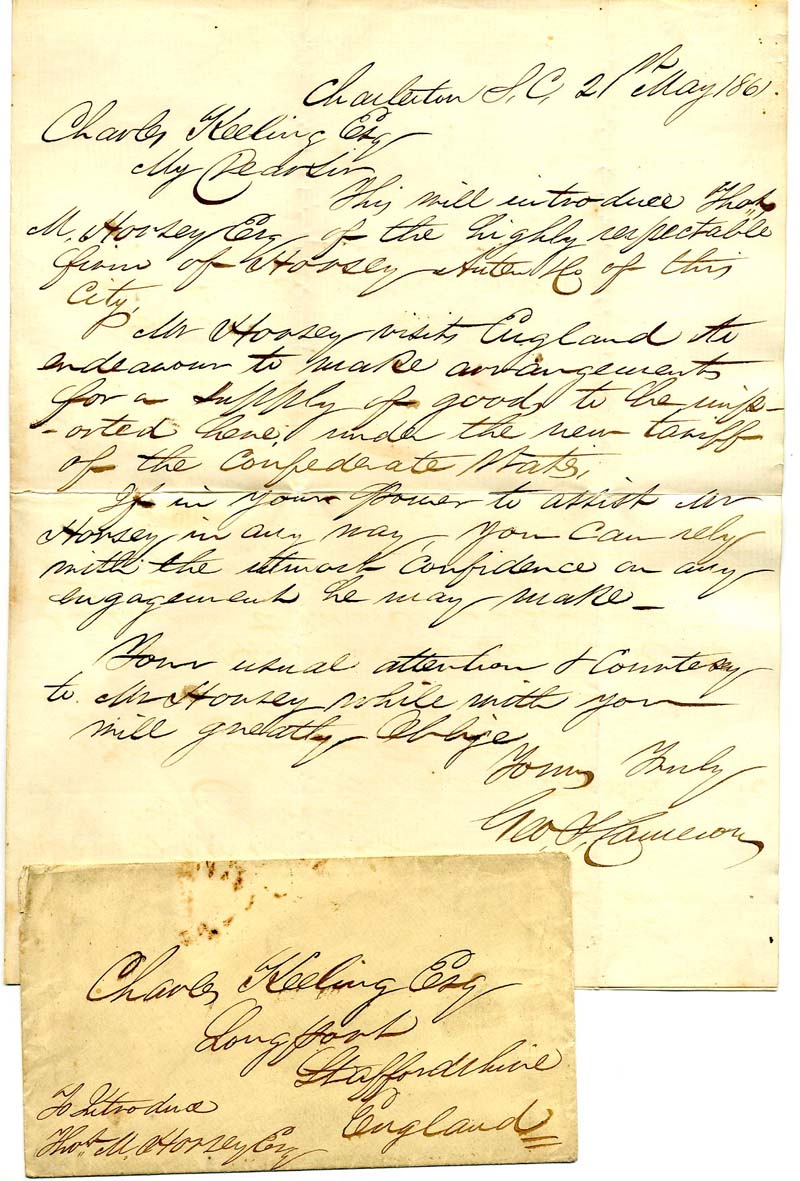 Charleston S.C. 21st May 186
Charles Keeling Esq
My Dear Sir
This will introduce Thos
M. Horsey Esq of the highly respectable
firm of Horsey Auten & Co of this
City,
Mr Horsey visits England to
endeavour to make arrangements
for a supply of goods to be imp-
-orted here, under the new tariff
of the Confederate States,
If in your power to assist Mr
Horsey in any way, you can rely
with the utmost confidence on any
engagement he may make _
Your usual attention & Courtesy
to Mr Horsey while with you
will greatly Oblige
Yours Truly
Geo. S. Cameron
Charles Keeling Esq
Longport
Staffordshire
England
To Introduce
Thos. M. Horsey Esq